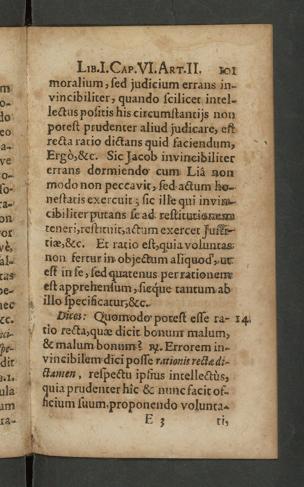 LIB.I.CAP.VI.ART.II. 101
moralium, sed judicium errans in-
vincibiliter, quando scilicet intel-
lectus positis his circumstantijs non
potest prudenter aliud judicare, est
recta ratio dictans quid faciendum,
Ergò, &c. Sic Jacob invincibiliter
errans dormiendo cum Liâ non
modo non peccavit, sed actum ho-
nestatis exercuit; sic ille qui invin-
cibiliter putans se ad restitutionem
teneri, restituit, actum exercet Justi-
tiæ, &c. Et ratio est, quia voluntas
non fertur in objectum aliquod, ut
est in se, sed quatenus per rationem
est apprehensum, sicque tantum ab
illo specificatur, &c.
Dices: Quomodo potest esse ra- 14.
tio recta, quæ dicit bonum malum,
& malum bonum? ℟. Errorem in-
vincibilem dici posse rationis rectæ di-
ctamen, respectu ipsius intellectûs,
quia prudenter hîc & nunc facit of-
ficium suum, proponendo volunta-
E 3 ti,